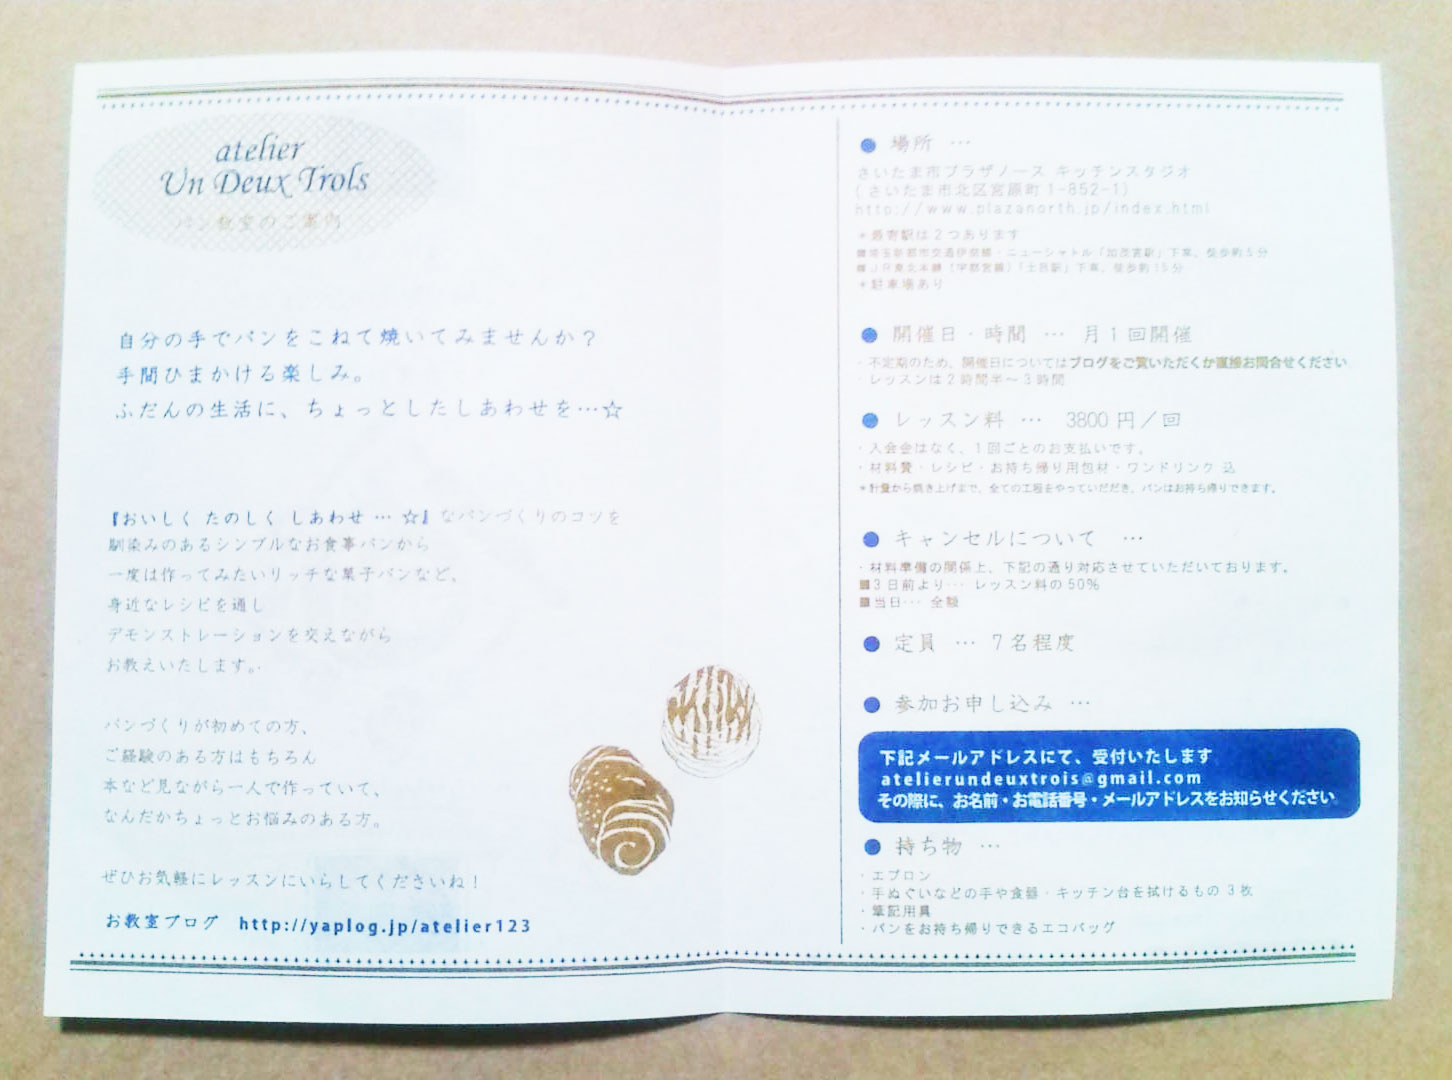 atelier
Un Deux Trois
パン教室のご案内
自分の手でパンをこねて焼いてみませんか？
手間ひまかける楽しみ。
ふだんの生活に、ちょっとしたしあわせを…☆
『おいしく たのしく しあわせ … ☆』なパンづくりのコツを
馴染みのあるシンプルなお食事パンから
一度は作ってみたいリッチな菓子パンなど、
身近なレシピを通し
デモンストレーションを交えながら
お教えいたします。
パンづくりが初めての方、
ご経験のある方はもちろん
本など見ながら一人で作っていて、
なんだかちょっとお悩みのある方。
ぜひお気軽にレッスンにいらしてくださいね！
お教室ブログ http://yaplog.jp/atelier123
● 場所 …
さいたま市プラザノース キッチンスタジオ
(さいたま市北区宮原町1-852-1)
http://www.plazanorth.jp/index.html
＊最寄駅は２つあります
■埼玉新都市交通伊奈線・ニューシャトル「加茂宮駅」下車、徒歩約５分
■ＪＲ東北本線（宇都宮線）「土呂駅」下車、徒歩約15分
＊駐車場あり
● 開催日・時間 … 月１回開催
・不定期のため、開催日についてはブログをご覧いただくか直接お問合せください
・レッスンは２時間半～３時間
● レッスン料 … 3800 円／回
・入会金はなく、１回ごとのお支払いです。
・材料費・レシピ・お持ち帰り用包材・ワンドリンク 込
＊計量から焼き上げまで、全ての工程をやっていただき、パンはお持ち帰りできます。
● キャンセルについて …
・材料準備の関係上、下記の通り対応させていただいております。
■３日前より… レッスン料の50％
■当日… 全額
● 定員 … ７名程度
● 参加お申し込み …
下記メールアドレスにて、受付いたします
atelierundeuxtrois@gmail.com
その際に、お名前・お電話番号・メールアドレスをお知らせください
● 持ち物 …
・エプロン
・手ぬぐいなどの手や食器・キッチン台を拭けるもの ３枚
・筆記用具
・パンをお持ち帰りできるエコバッグ